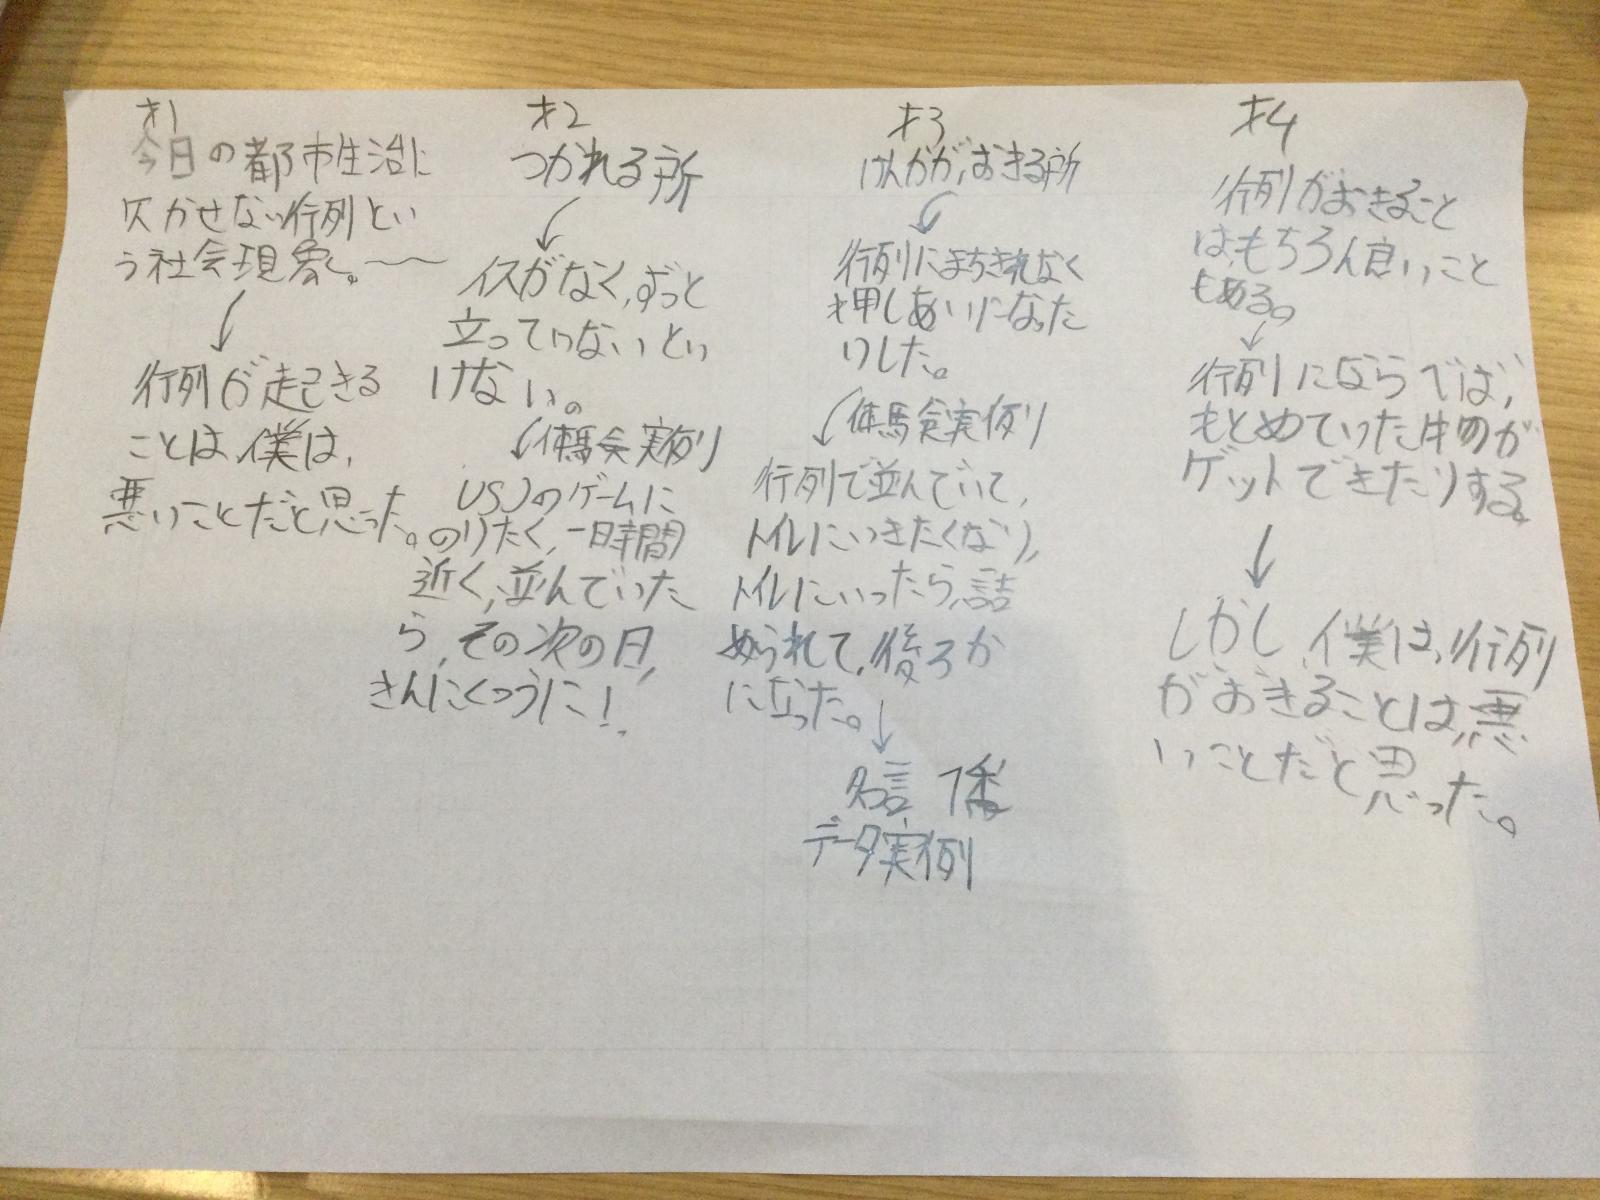 才1
今日の都市生活に
欠かせない行列とい
う社会現象。〜〜
行列が起きる
ことは、僕は、
悪いことだと思った。
才2
つかれる所
イスがなく、ずっと
立っていないとい
けない。
体験実例
USJのゲームに
のりたく、一日時間
近く、並んでいた
ら、その次の日、
きんにくつうに!
才3
けんかが、おきる所
行列にまちきれなく
押しあいになった
りした。
体験実例
行列で並んでいて、
トイレにいきたくなり、
トイレにいったら、詰
められて、後ろか
になった。
名言
データ実例
才4
行列がおきること
は、もちろん良いこと
もある。
行列にならべば、
もとめていた物が
ゲットできたりする。
しかし、僕は、行列
がおきることは、悪
いことだと思った。